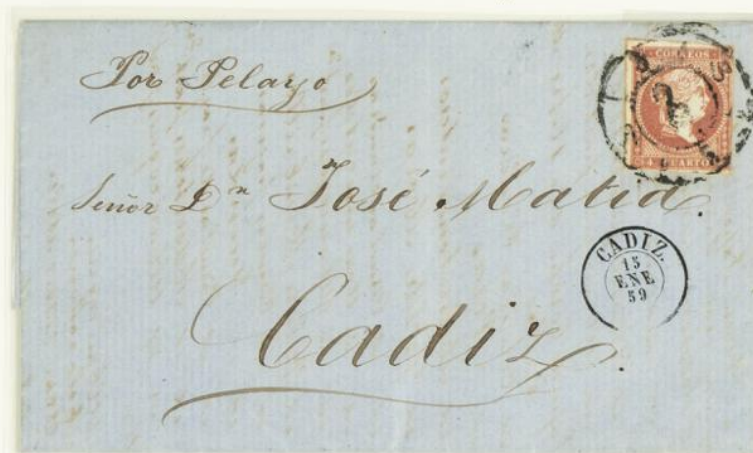 Por Pelayo
CORREOS
4 CUARTOS
Señor Dn José Matia.
CADIZ.
15
ENE
59
Cadiz.